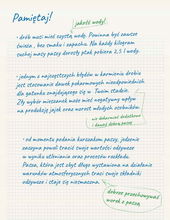 Pamiętaj!
jakość wody!
• drób musi mieć czystą wodę. Powinna być zawsze
świeża, bez smaku i zapachu. Na każdy kilogram
suchej masy paszy dorosły ptak pobiera 2,5 l wody.
• jednym z najczęstszych błędów w karmieniu drobiu
jest stosowanie dawek pokarmowych nieodpowiednich
dla gatunku znajdującego się w Twoim stadzie.
Zły wybór mieszanek może mieć negatywny wpływ
na produkcję jajek oraz wzrost młodych osobników.
nie dokarmiać dodatkowo
• od momentu podania kurczakom paszy, jedzenie
zaczyna powoli tracić swoje wartości odżywcze
w wyniku utleniania oraz procesów rozkładu.
Pasza, która jest zbyt długo wystawiona na działanie
warunków atmosferycznych traci swoje składniki
odżywcze i staje się niesmaczna.
dobrze przechowywać
worek z paszą